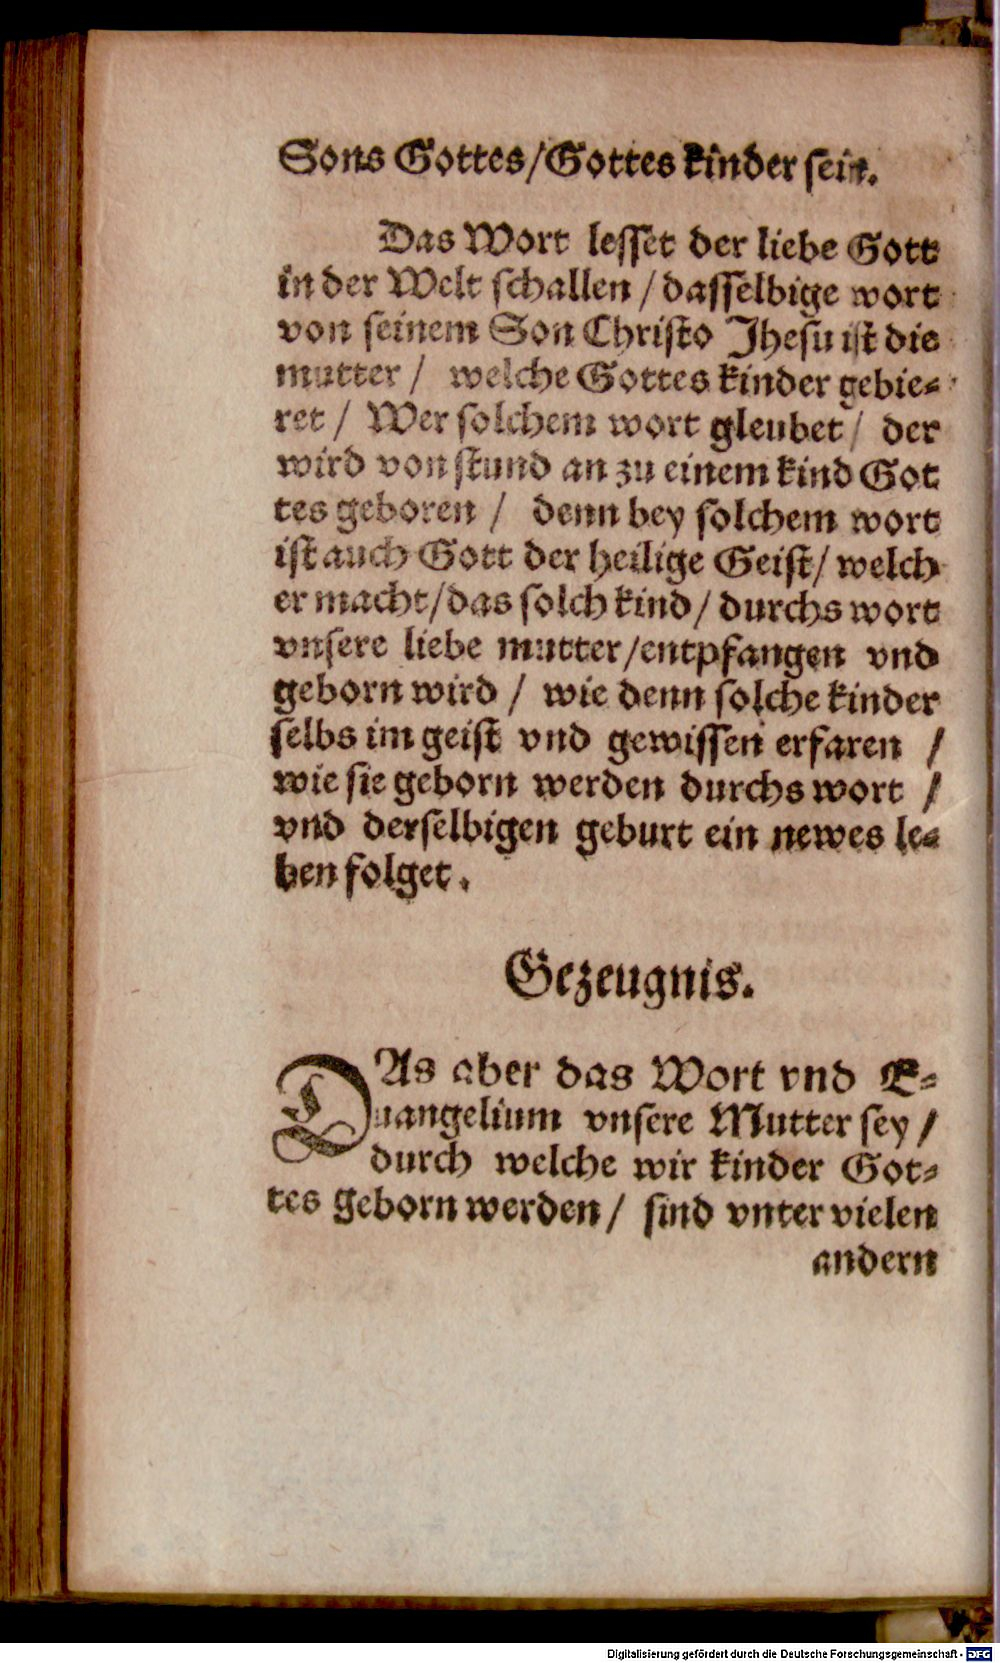 Sons Gottes/Gottes kinder sein.
Das Wort lesset der liebe Gott
in der Welt schallen / dasselbige wort
von seinem Son Christo Jhesu ist die
mutter / welche Gottes kinder gebie-
ret / Wer solchem wort gleubet / der
wird von stund an zu einem kind Got
tes geboren / denn bey solchem wort
ist auch Gott der heilige Geist/ welch
er macht/das solch kind / durchs wort
vnsere liebe mutter/entpfangen vnd
geborn wird / wie denn solche kinder
selbs im geist vnd gewissen erfaren /
wie sie geborn werden durchs wort /
vnd derselbigen geburt ein newes le-
ben folget.
Gezeugnis.
DAs aber das Wort vnd E-
uangelium vnsere Mutter sey /
durch welche wir kinder Got-
tes geborn werden / sind vnter vielen
andern
Digitalisierung gefördert durch die Deutsche Forschungsgemeinschaft - DFG